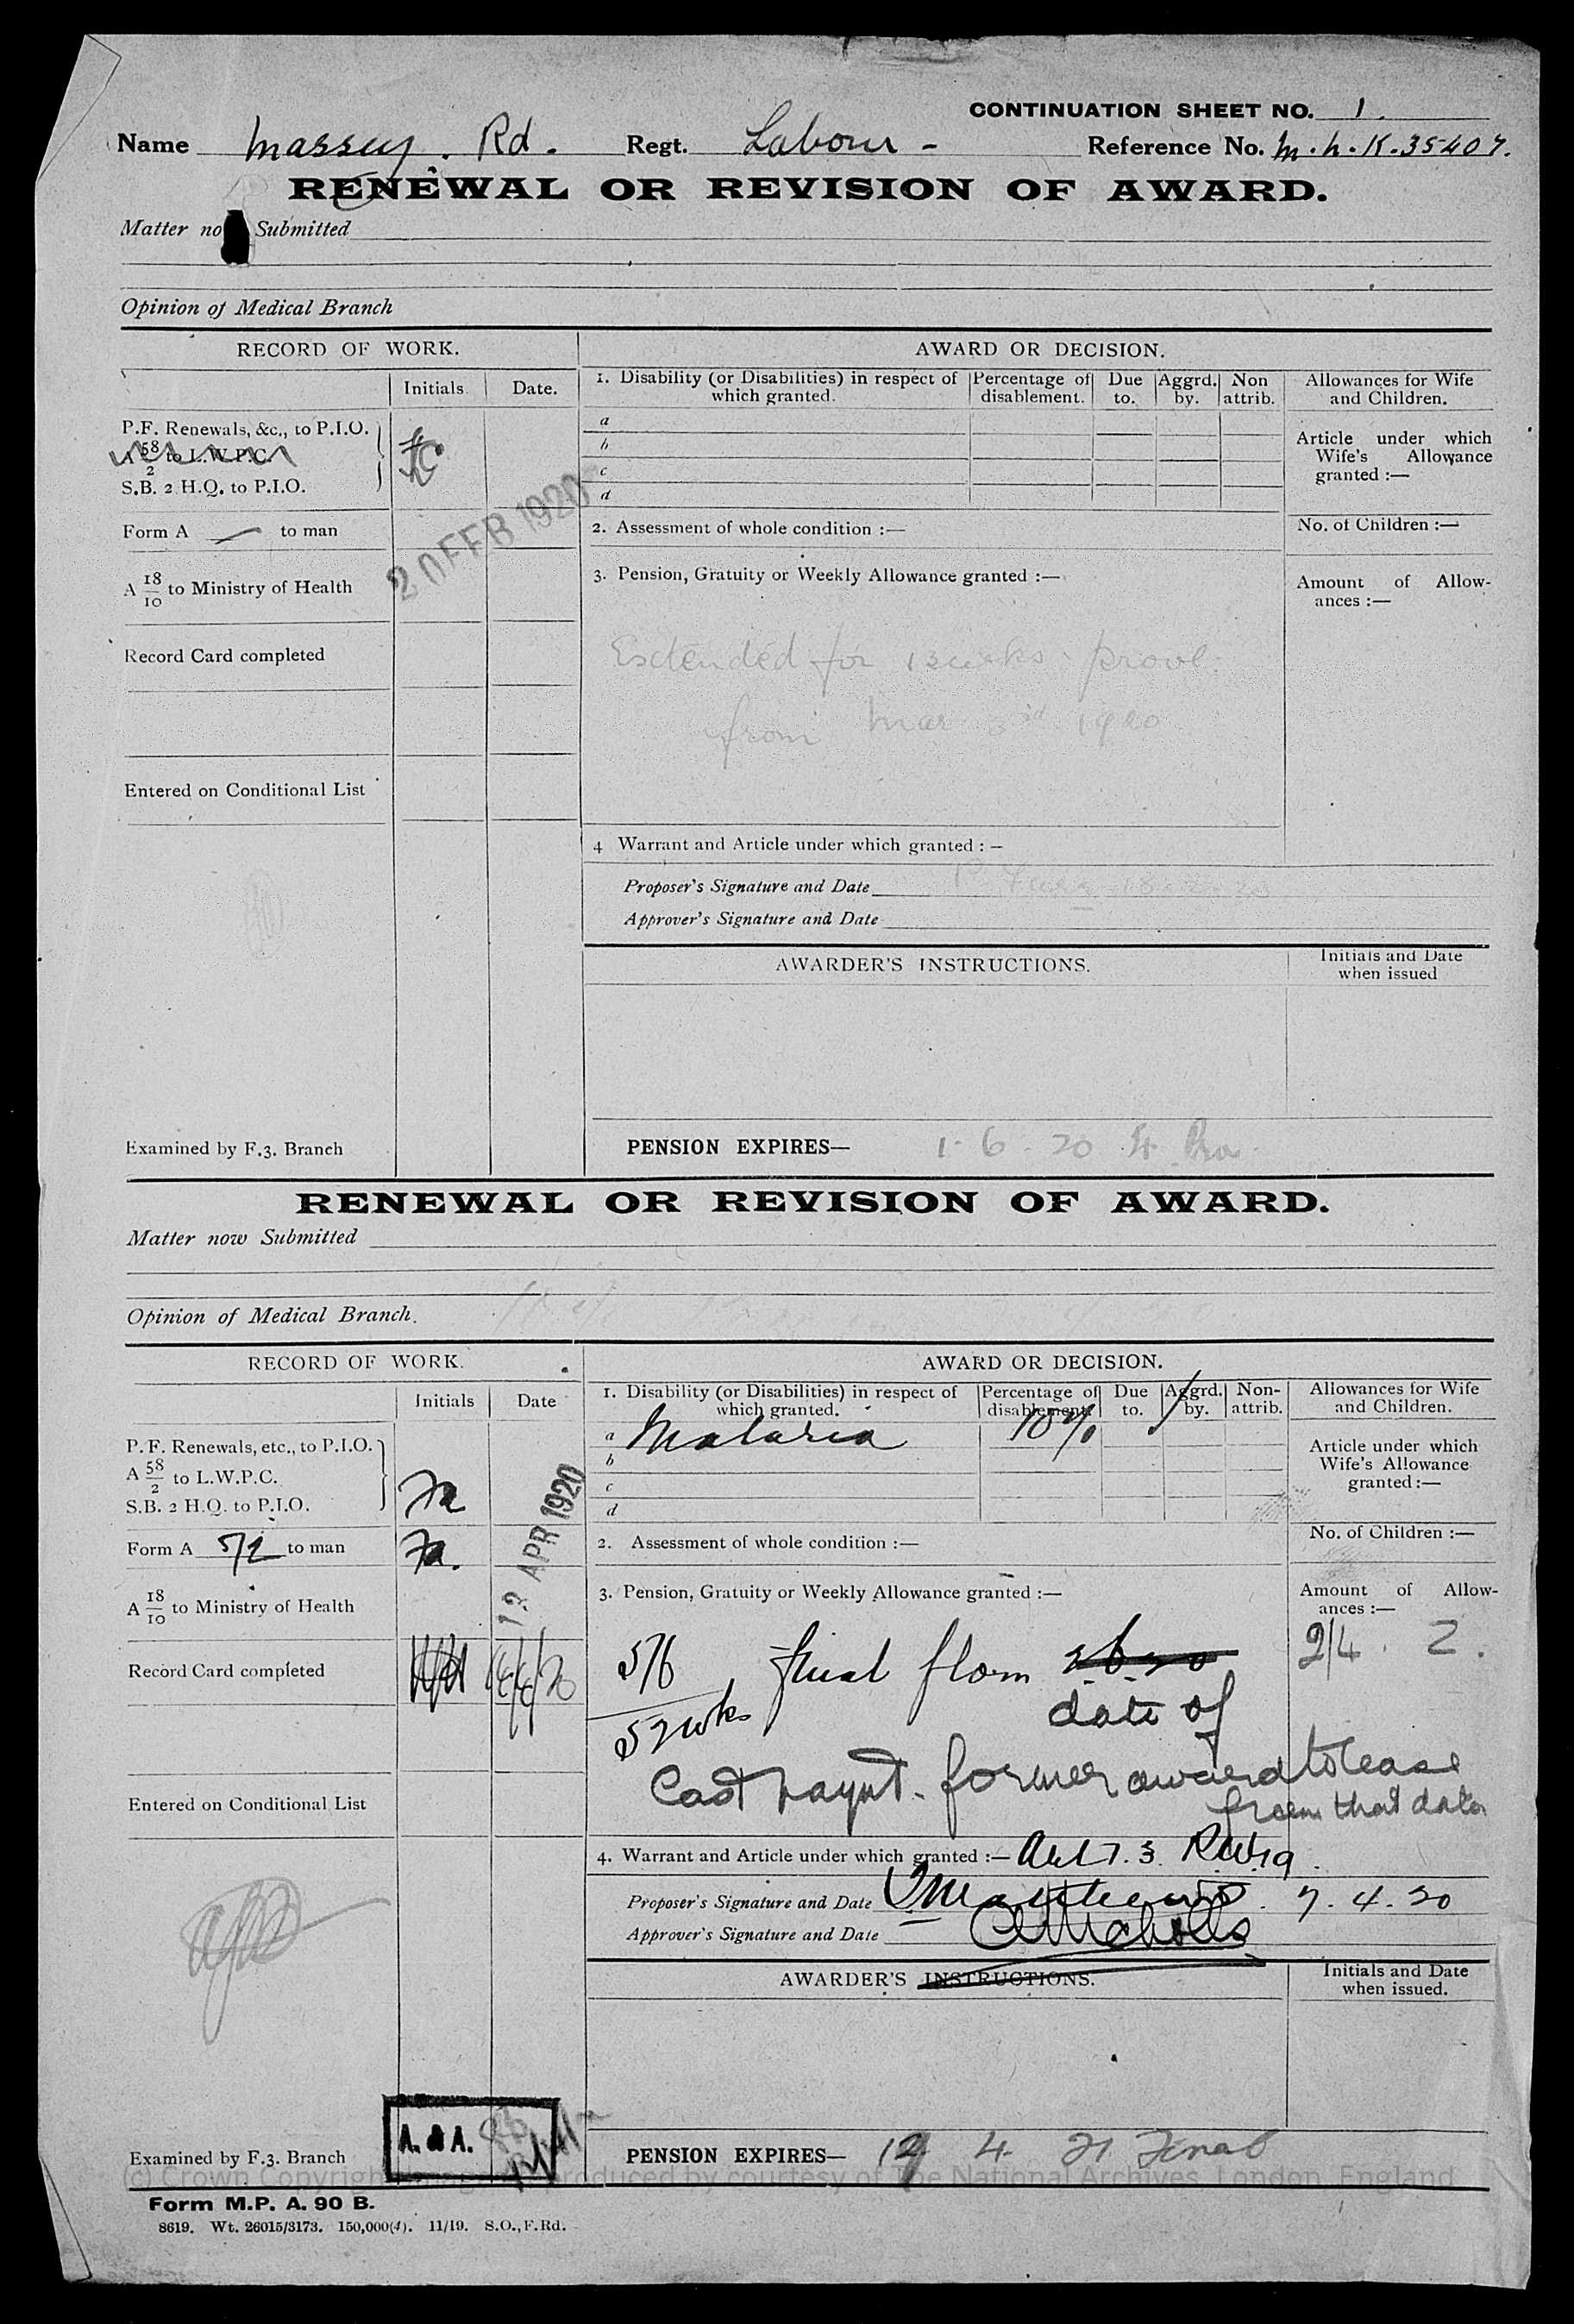 CONTINUATION SHEET NO. 1.
Name Massey. Rd. Regt. Labour - Reference No. M.h.K.35407.
RENEWAL OR REVISION OF AWARD.
Matter no Submitted
Opinion of Medical Branch
RECORD OF WORK.
AWARD OR DECISION.
Initials Date.
1. Disability (or Disabilities) in respect of which granted.
Percentage of disablement.
Due to.
Aggrd. by.
Non attrib.
Allowances for Wife and Children.
P.F. Renewals, &c., to P.I.O.
A 58/2 to L.W.P.C.
S.B. 2 H.Q. to P.I.O.
a
b
c
d
Article under which Wife's Allowance granted :—
20 FEB 1920
Form A — to man
2. Assessment of whole condition :—
No. of Children :—
A 18/10 to Ministry of Health
3. Pension, Gratuity or Weekly Allowance granted :—
Amount of Allowances :—
Record Card completed
Extended for 13 weeks provl.
from Mar 3rd 1920
Entered on Conditional List
4 Warrant and Article under which granted : —
Proposer's Signature and Date 18.2.20
Approver's Signature and Date
AWARDER'S INSTRUCTIONS.
Initials and Date when issued
Examined by F.3. Branch
PENSION EXPIRES— 1-6-20
RENEWAL OR REVISION OF AWARD.
Matter now Submitted
Opinion of Medical Branch.
RECORD OF WORK.
AWARD OR DECISION.
Initials Date
1. Disability (or Disabilities) in respect of which granted.
Percentage of disablement.
Due to.
Aggrd. by.
Non-attrib.
Allowances for Wife and Children.
P.F. Renewals, etc., to P.I.O.
A 58/2 to L.W.P.C.
S.B. 2 H.Q. to P.I.O.
a Malaria 10%
b
c
d
Article under which Wife's Allowance granted :—
12 APR 1920
Form A 5/2 to man
2. Assessment of whole condition :—
No. of Children :—
A 18/10 to Ministry of Health
3. Pension, Gratuity or Weekly Allowance granted :—
Amount of Allowances :—
2/4. 2.
Record Card completed
5/6 final from 2.6.20
52 wks date of
Last paymt. former award to cease
from that date
Entered on Conditional List
4. Warrant and Article under which granted :— Art 7.3. R.W.19.
Proposer's Signature and Date 7.4.20
Approver's Signature and Date
AWARDER'S INSTRUCTIONS.
Initials and Date when issued.
A. & A.
Examined by F.3. Branch
PENSION EXPIRES— 19 4 21 Final
(c) Crown Copyright Images reproduced by courtesy of The National Archives, London, England
Form M.P. A. 90 B.
8619. Wt. 26015/3173. 150,000(4). 11/19. S.O., F.Rd.